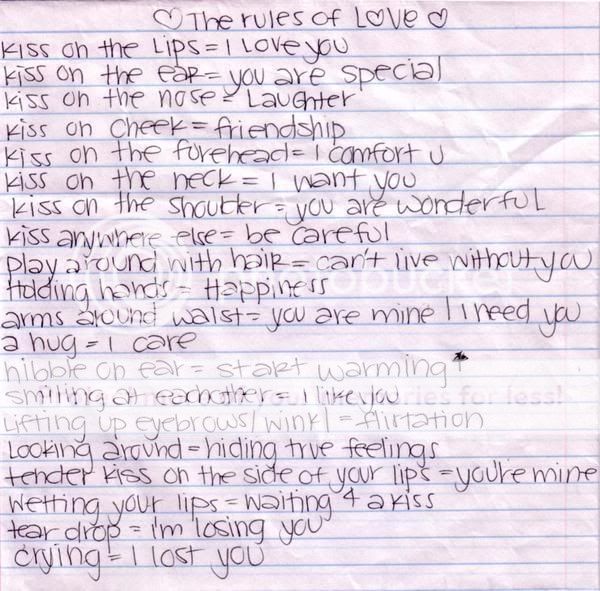 ♡ The rules of Love ♡
kiss on the Lips = I Love you
kiss on the ear = you are special
kiss on the nose = Laughter
kiss on cheek = friendship
kiss on the forehead = I comfort u
kiss on the neck = I want you
kiss on the shoulder = you are wonderful
kiss anywhere else = be careful
play around with hair = can't live without you
Holding hands = Happiness
arms around waist = you are mine / I need you
a hug = I care
nibble on ear = start warming ↑
smiling at eachother = I like you
Lifting up eyebrows/wink/ = flirtation
Looking around = hiding true feelings
tender kiss on the side of your lips = you're mine
wetting your lips = waiting 4 a kiss
tear drop = i'm losing you
crying = I lost you
for less!